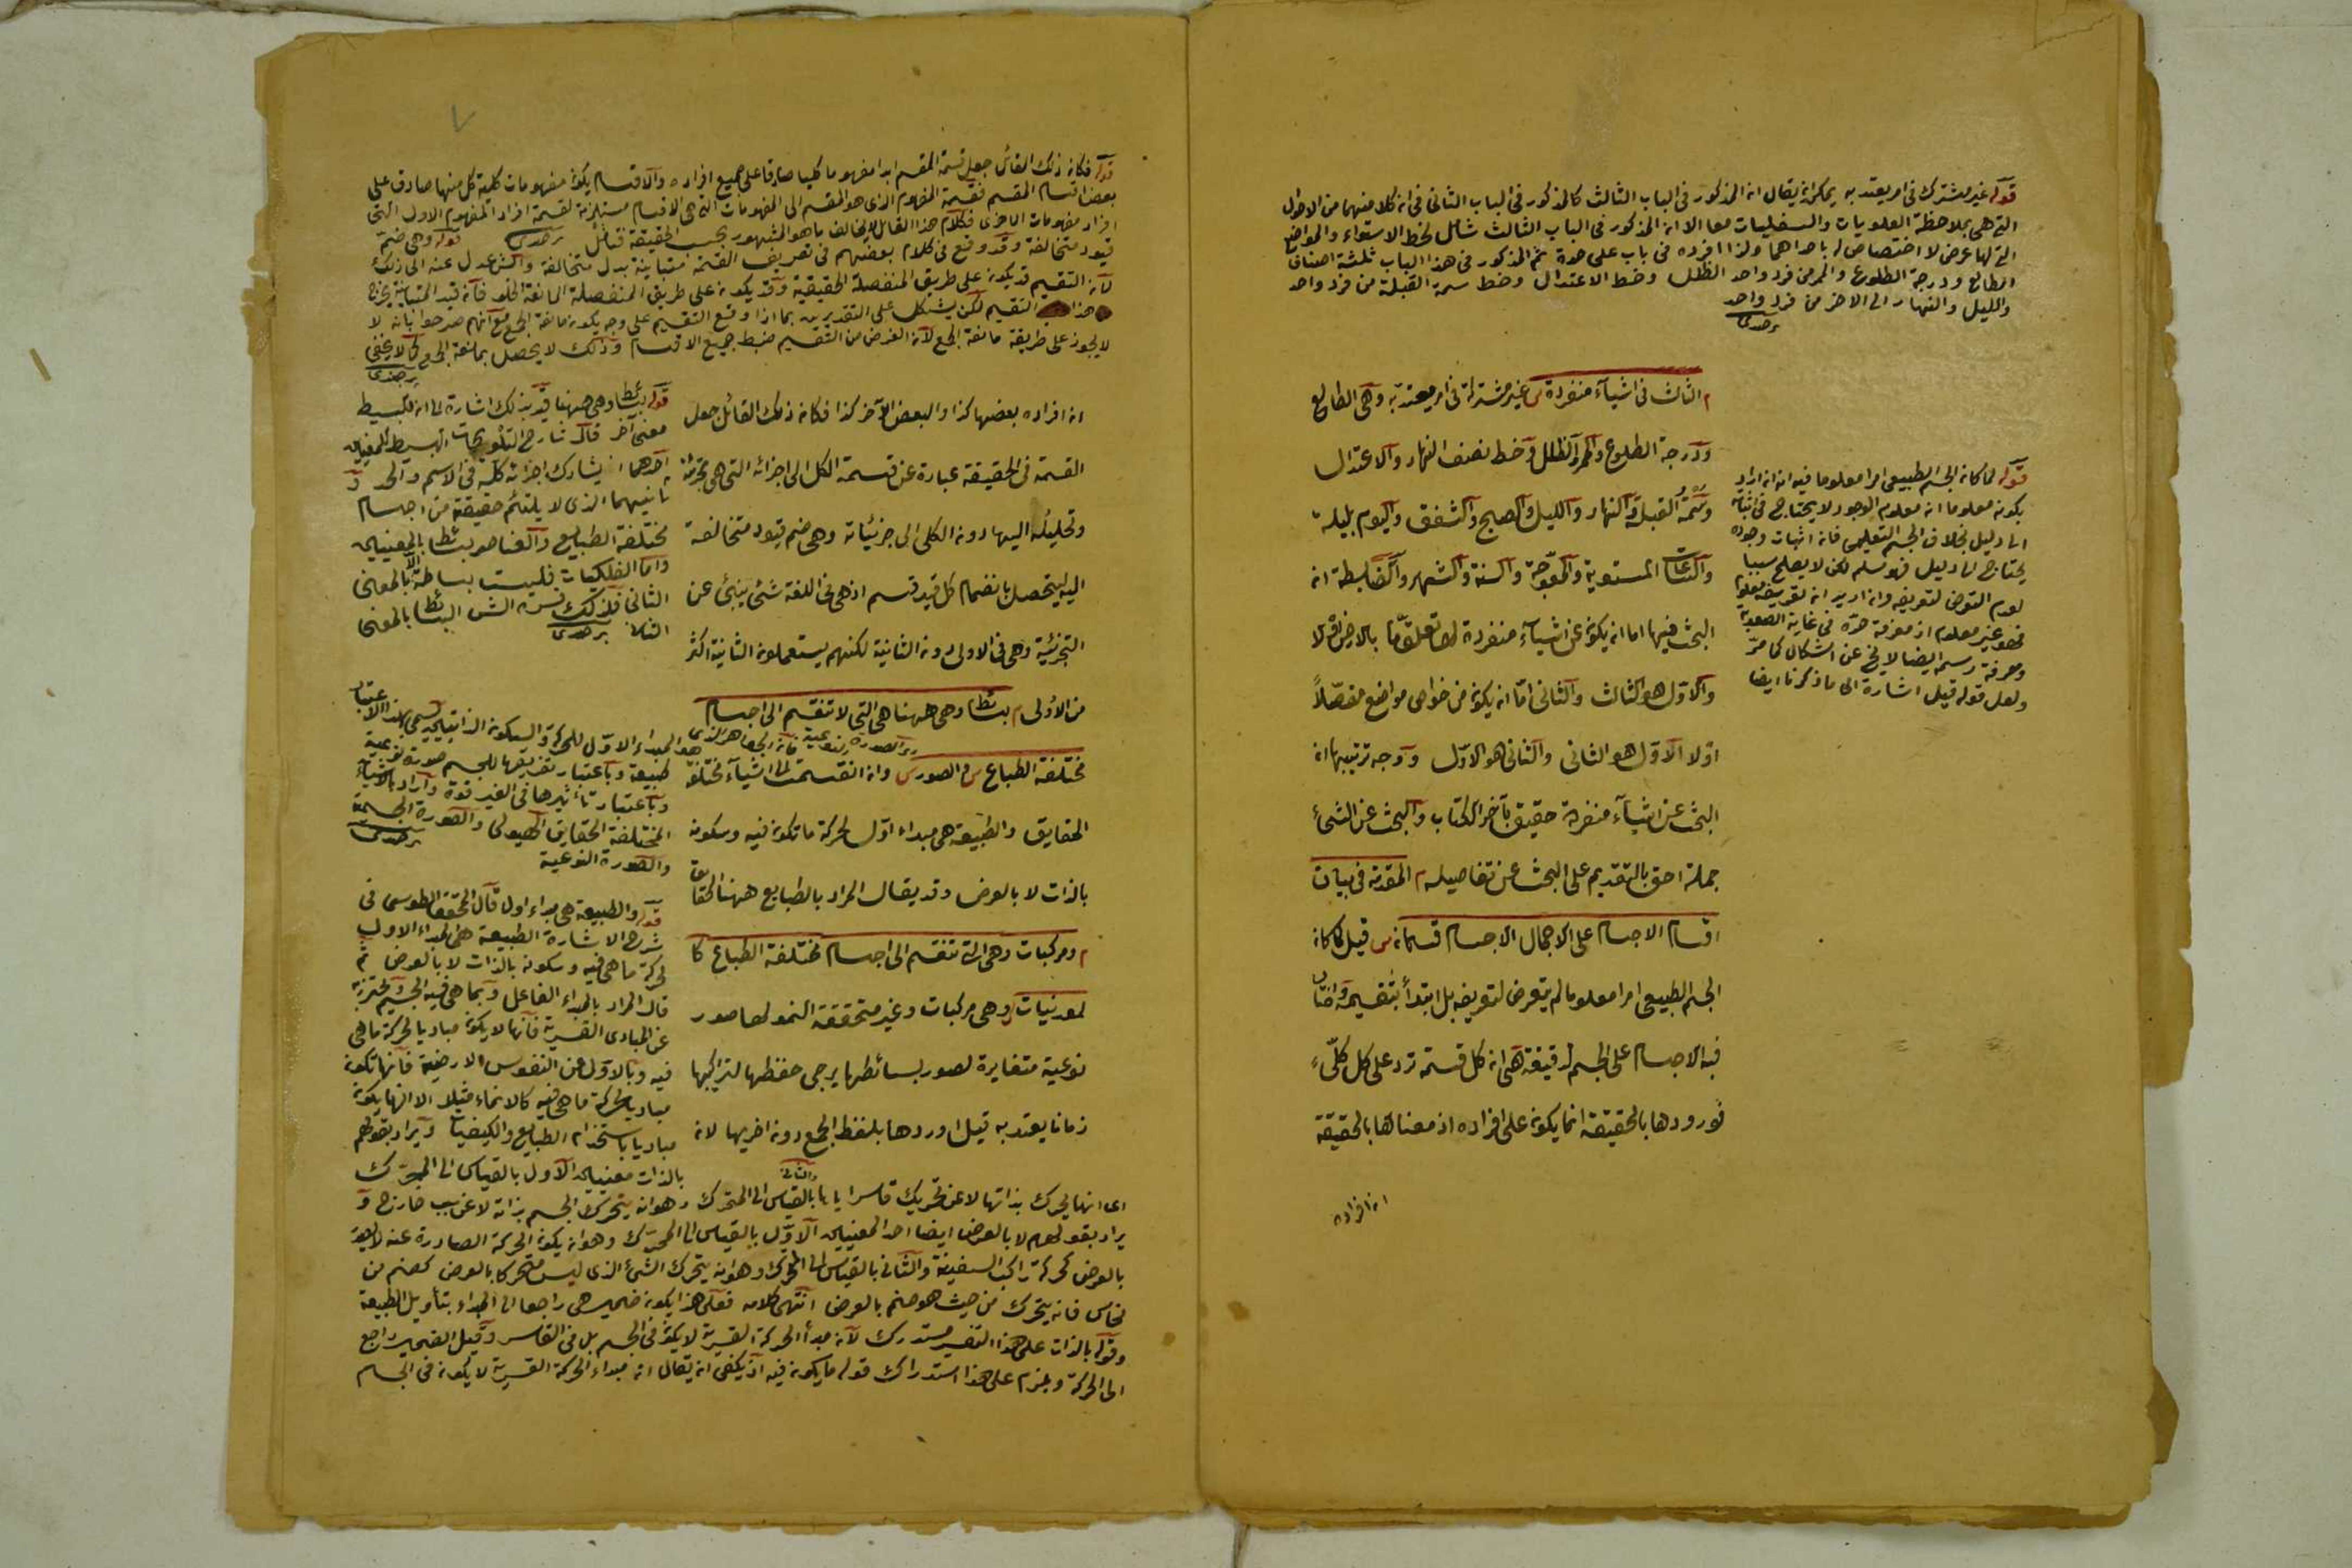 قوله غير مشتركة فى امر يعتد به يمكن ان يقال ان المذكور فى الباب الثالث كالمذكور فى الباب الثانى فى ان كلا منهما من الاحوال
التى هى بملاحظة العلويات والسفليات معا الا ان المذكور فى الباب الثالث شامل لخط الاستواء والمواضع
التى لها عرض لا اختصاص له باحداهما ولذا افرده فى باب على حدة ثم المذكور فى هذا الباب ثلثة اصناف
الطالع ودرجة الطلوع والممر من فرد واحد الظل وخط الاعتدال وخط سمت القبلة من فرد واحد
والليل والنهار الى الاخر من فرد واحد
برجندى
م الثالث فى اشيآء منفردة س غير مشتركة فى امر معتد به وهى الطالع
ودرجة الطلوع والممر والظل وخط نصف النهار والاعتدال
وسمت القبلة والنهار والليل والصبح والشفق واليوم بليلته
والساعات المستوية والمعوجّة والسنة والشهر والضابطة ان
البحث فيها اما ان يكون عن اشيآء منفردة لها تعلق ما بالارض او لا
والاول هو الثالث والثانى امّا ان يكون من خواص مواضع مفصّلاً
اولا الاوّل هو الثانى والثانى هو الاول ووجه ترتيبها ان
البحث عن اشيآء منفردة حقيق بآخر الكتاب والبحث عن الشئ
جملة احق بالتقديم على البحث عن تفاصيله م المقدمة فى بيان
اقسام الاجسام على الاجمال الاجسام قسمان س قيل لما كان
الجسم الطبيعى امرا معلوما لم يتعرض لتعريفه بل ابتدأ بتقسيمه واختار
فيه الاجسام على الجسم لدقيقة هى ان كل قسمة ترد على كل كلّىّ
فورودها بالحقيقة انما يكون على افراده اذ معناها بالحقيقة
ان افراده
قوله لما كان الجسم الطبيعى امرا معلوما فيه انه ان اراد
بكونه معلوما انه معلوم الوجود لا يحتاج فى اثباته
الى دليل بخلاف الجسم التعليمى فان اثبات وجوده
يحتاج الى دليل فهو مسلم لكن لا يصلح سببا
لعدم التعرض لتعريفه وان اريد ان تعريفه معلوم
فهو غير معلوم اذ معرفة حدّه فى غاية الصعوبة
ومعرفة رسمه ايضا لا يخ عن اشكال كما مرّ
ولعل قوله قيل اشارة الى ما ذكرنا ايضا
قوله فكان ذلك القائل جعل قسمة المقسم ابدا مفهوما كليا صادقا على جميع افراده والاقسام يكون مفهومات كلية كل منها صادق على
بعض اقسام المقسم فقسمة المفهوم الذى هو المقسم الى المفهومات التى هى الاقسام مستلزمة لقسمة افراد المفهوم الاول الى
افراد مفهومات الاخرى فكلام هذا القائل لا يخالف ما هو المشهور بحسب الحقيقة فتأمل برجندى قوله وهى ضم
قيود متخالفة وقد وقع فى كلام بعضهم فى تعريف القسمة متباينة بدل متخالفة والش عدل عنه الى ذلك
لان التقسيم قد يكون على طريق المنفصلة الحقيقية وقد يكون على طريق المنفصلة المانعة الخلو فان قيد المتباينة يخرج
هذا التقيم لكن يشكل على التقديرين بما اذا وقع التقسيم على وجه يكون مانعة الجمع مع انهم صرحوا بانه لا
لا يجوز على طريقة مانعة الجمع لان الغرض من التقسيم ضبط جميع الاقسام وذلك لا يحصل بمانعة الجمع كما لا يخفى
برجندى
ان افراده بعضها كذا والبعض الآخر كذا فكان ذلك القائل جعل
القسمة فى الحقيقة عبارة عن قسمة الكل الى اجزائه التى هى تجزئته
وتحليله اليها دون الكلى الى جزئياته وهى ضم قيود متخالفة
اليه ليتحصل بانضمام كل قيد قسم اذ هى فى اللغة شئ ينبئ عن
التجزئية وهى فى الاولى دون الثانية لكنهم يستعملون الثانية اكثر
من الاولى م بسائط وهى ههنا هى التى لا تنقسم الى اجسام
مختلفة الطباع س والصور س وان انقسمت الى اشيآء مختلفة
الحقايق والطبيعة هى مبداء اوّل لحركة ما تكون فيه وسكونه
بالذات لا بالعرض وقد يقال المراد بالطبايع ههنا الحقايق
م ومركبات وهى التى تنقسم الى اجسام مختلفة الطباع كا
لمعدنيات س وهى مركبات وغير متحققة النمو لها صور
نوعية متغايرة لصور بسائطها يرجى حفظها لتراكيبها
زمانا يعتد به قيل اوردها بلفظ الجمع دون اخريها لان
قوله بسائط وهى ههنا قيد بذلك اشارة الى ان للبسيط
معنى آخر قال شارح التلويحات البسيط لمعنيين
احدهما ان يشارك اجزائه كله فى الاسم والحد و
ثانيهما الذى لا يلتئم حقيقته من اجسام
مختلفة الطبايع والعناصر بسائط بالمعنيين
واما الفلكيات فليست بساطة الا بالمعنى
الثانى فلذلك فسره الش البسائط بالمعنى
الثانى برجندى
س والصورة النوعية فانه الجوهر الذى
هو المبداء الاول للحركة والسكون الذاتيتين يسمى بهذا الاعتبار
طبيعة وباعتبار تقريبها للجسم صورة نوعية
وباعتبار تأثيرها فى الغير قوة واراد بالاشياء
المختلفة الحقايق الهيولى والصورة الجسمية
والصورة النوعية برجندى
قوله والطبيعة هى مبداء اول قال المحقق الطوسى فى
شرح الاشارة الطبيعة هى المبداء الاول
لحركة ما هى فيه وسكونه بالذات لا بالعرض ثم
قال المراد بالمبداء الفاعل وبما هى فيه الجسم ويحترز به
عن المبادى القسرية فانها لا يكون مباديا لحركة ما هى
فيه وبالاول عن النفوس الارضية فانها تكون
مباديا لحركة ما هى فيه كالانماء مثلا الا انها يكون
مباديا باستخدام الطبايع والكيفيات ويراد بقولهم
بالذات معنيين الاول بالقياس الى المحرك
اى انها يحرك بذاتها لا عن تحريك قاسر اياها والثانى بالقياس الى المتحرك وهو ان يتحرك الجسم بذاته لا عن سبب خارج و
يراد بقولهم لا بالعرض ايضا احد المعنيين الاوّل بالقياس الى المحرك وهو ان يكون الحركة الصادرة عنه لا يصدر
بالعرض كحركة راكب السفينة والثانى بالقياس الى المتحرك وهو ان يتحرك الشئ الذى ليس متحركا بالعرض كصنم من
نحاس فانه يتحرك من حيث هو صنم بالعرض انتهى كلامه فعلى هذا يكون ضمير هى راجعا الى المبداء بتأويل الطبيعة
وقوله بالذات على هذا التفسير مستدرك لان مبدأ الحركة القسرية لا يكون فى الجسم بل فى القاسر وقيل الضمير راجع
الى الحركة ويلزم على هذا استدراك قوله ما يكون فيه اذ يكفى ان يقال ان مبداء الحركة القسرية لا يكون فى الجسم